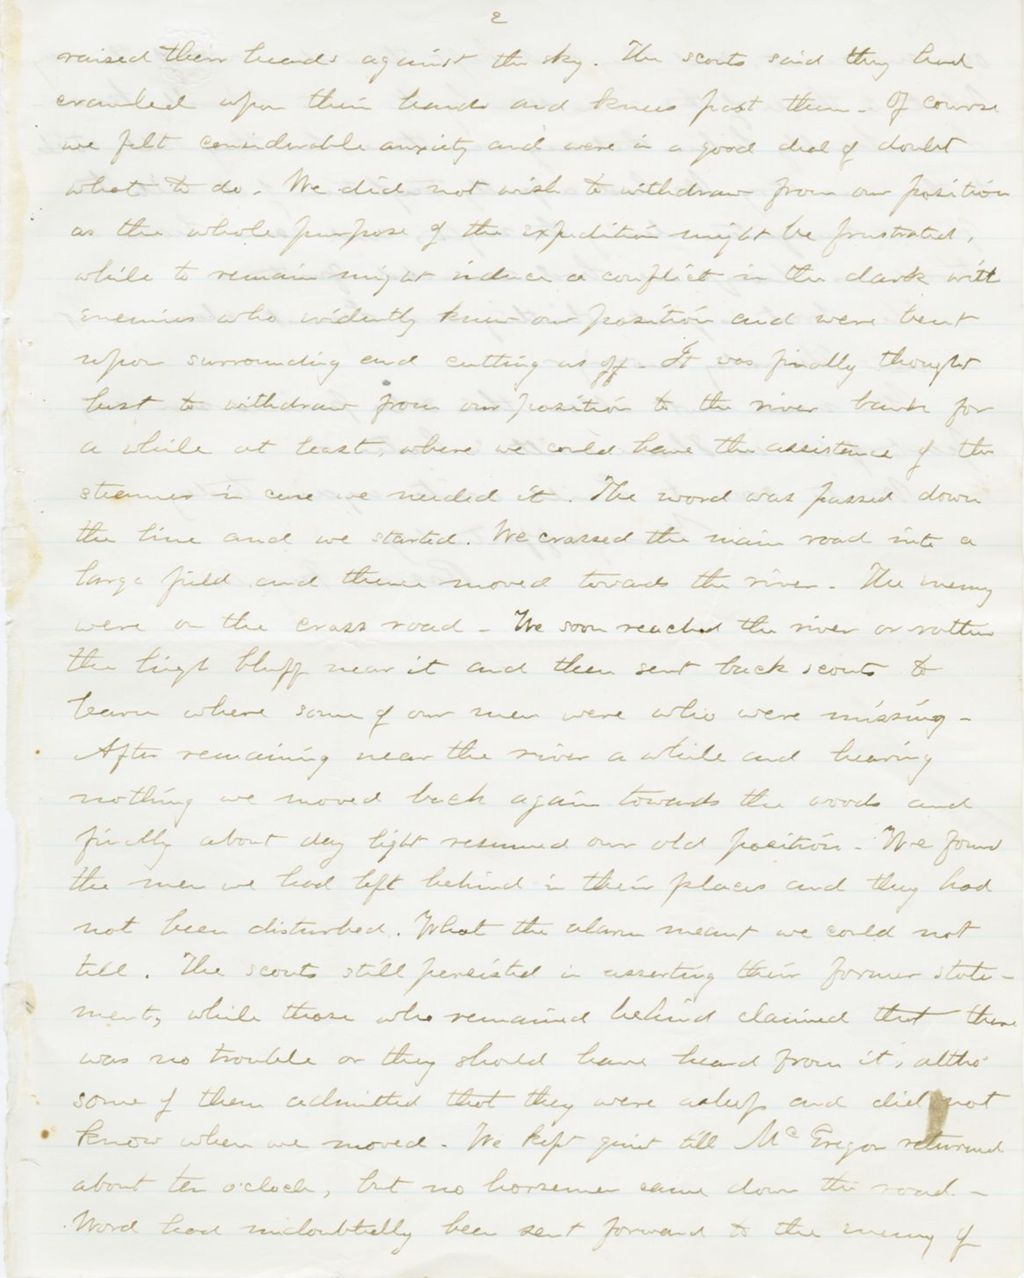 2
raised their heads against the sky. The scouts said they had
crawled upon their hands and knees past them - Of course
we felt considerable anxiety and were in a good deal of doubt
what to do. We did not wish to withdraw from our position
as the whole purpose of the expedition might be frustrated,
while to remain might induce a conflict in the dark with
enemies who evidently knew our position and were bent
upon surrounding and cutting us off - It was finally thought
best to withdraw from our position to the river bank for
a while at least, where we could have the assistance of the
steamer in case we needed it. The word was passed down
the line and we started. We crossed the main road into a
large field and thence moved towards the river - The enemy
were on the cross road - We soon reached the river or rather
the high bluff near it and then sent back scouts to
learn where some of our men were who were missing -
After remaining near the river a while and hearing
nothing we moved back again towards the woods and
finally about day light resumed our old position - We found
the men we had left behind in their places and they had
not been disturbed. What the alarm meant we could not
tell. The scouts still persisted in asserting their former state-
ments, while those who remained behind claimed that there
was no trouble or they should have heard from it, altho'
some of them admitted that they were asleep and did not
know when we moved - We kept quiet till McGregor returned
about ten o'clock, but no horsemen came down the road -
Word had undoubtedly been sent forward to the enemy of